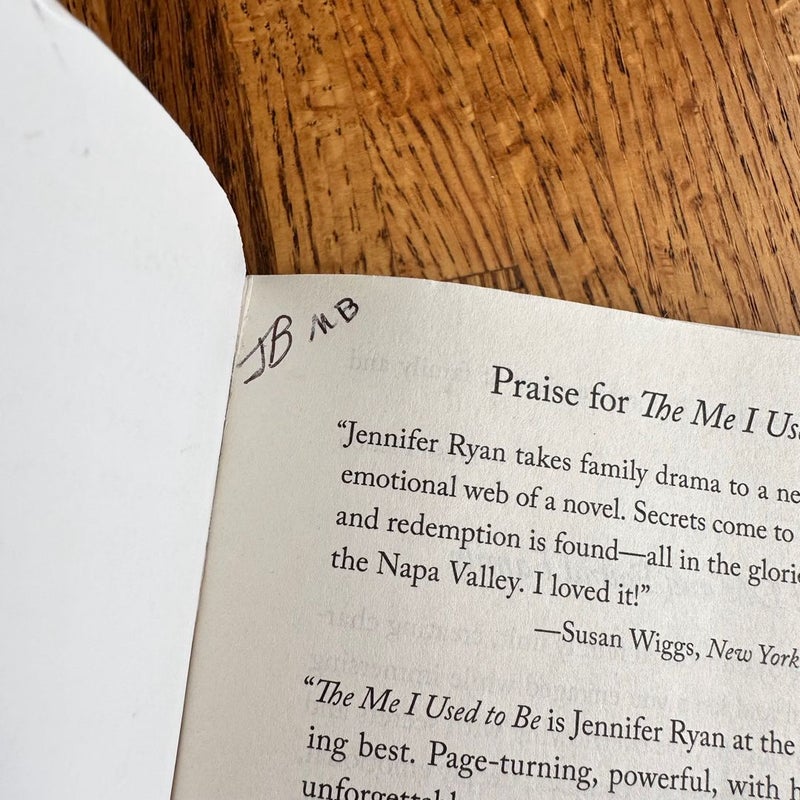 JB MB
Praise for The Me I
“Jennifer Ryan takes family drama to a
emotional web of a novel. Secrets come to
and redemption is found—all in the
the Napa Valley. I loved it!”
—Susan Wiggs, New York
“The Me I Used to Be is Jennifer Ryan at the
ing best. Page-turning, powerful, with